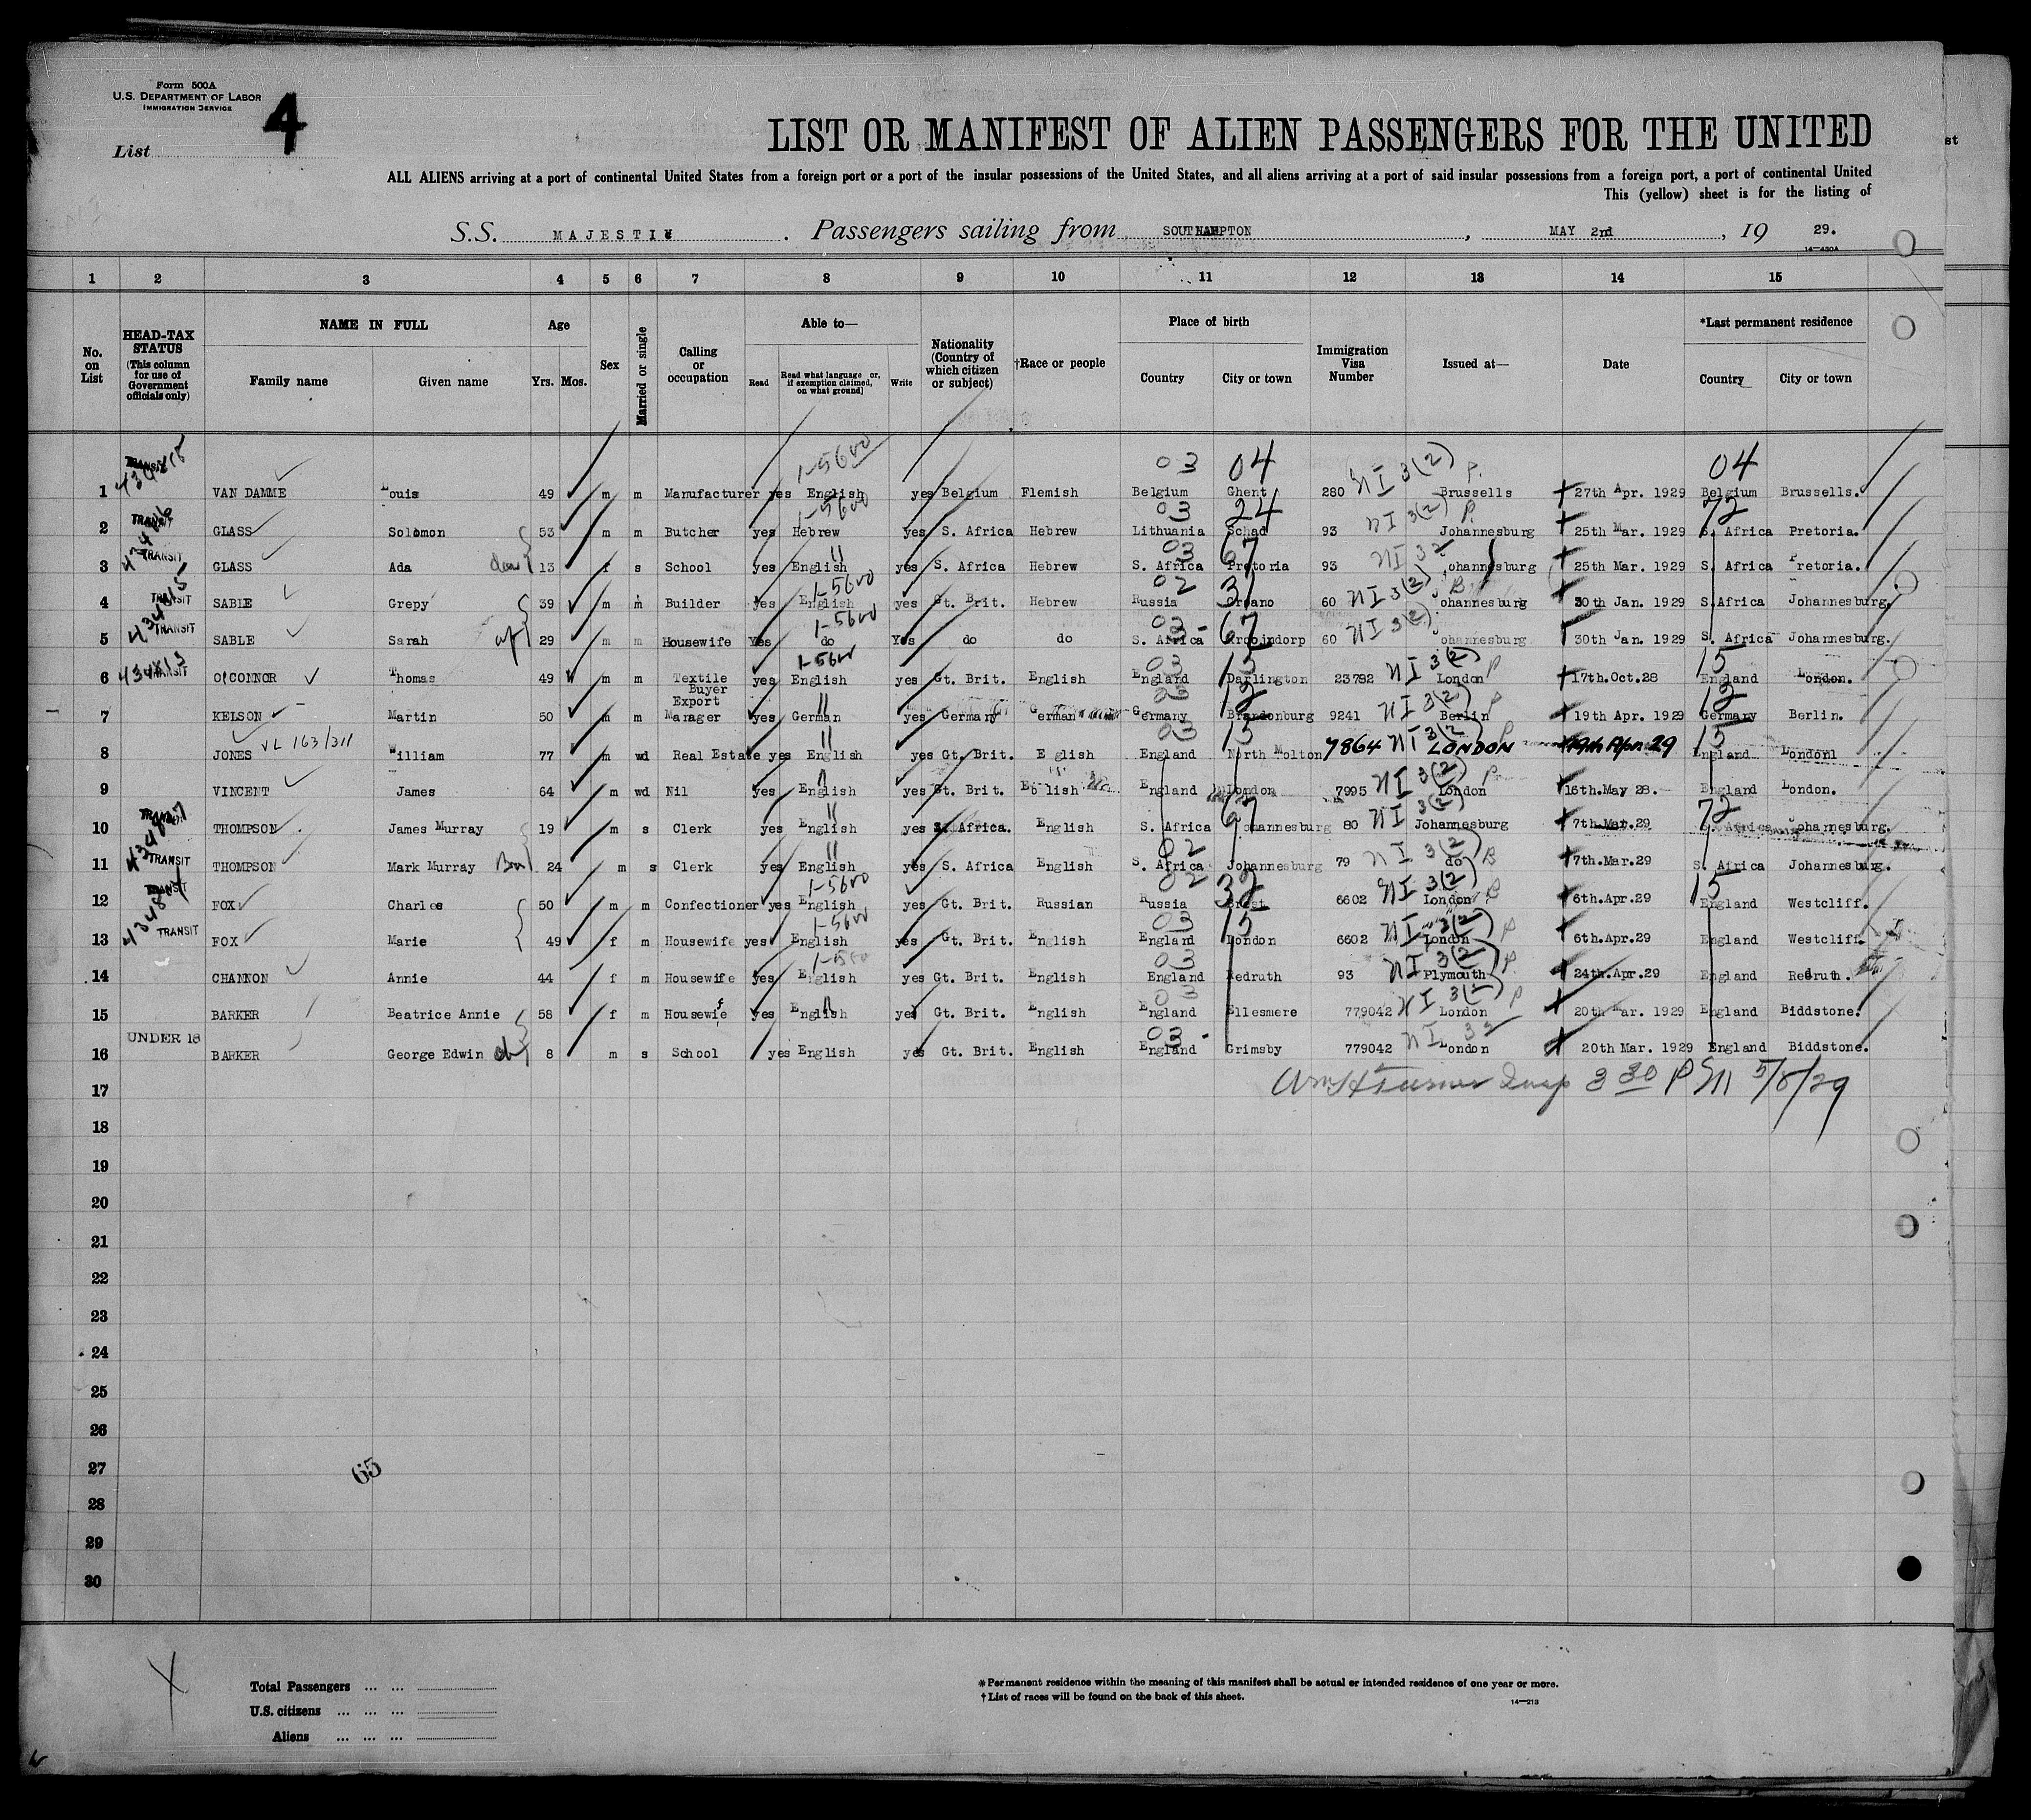 Form 500A
U.S. DEPARTMENT OF LABOR
IMMIGRATION SERVICE
List 4
LIST OR MANIFEST OF ALIEN PASSENGERS FOR THE UNITED
ALL ALIENS arriving at a port of continental United States from a foreign port or a port of the insular possessions of the United States, and all aliens arriving at a port of said insular possessions from a foreign port, a port of continental United
This (yellow) sheet is for the listing of
S.S. MAJESTIC. Passengers sailing from SOUTHAMPTON, MAY 2nd, 19 29.
14—430A
1 2 3 4 5 6 7 8 9 10 11 12 13 14 15
No. on List
HEAD-TAX STATUS (This column for use of Government officials only)
NAME IN FULL Family name Given name
Age Yrs. Mos.
Sex
Married or single
Calling or occupation
Able to— Read Read what language or, if exemption claimed, on what ground] Write
Nationality (Country of which citizen or subject)
†Race or people
Place of birth Country City or town
Immigration Visa Number
Issued at—
Date
*Last permanent residence Country City or town
1-5600 03 04 NI 3(2) P. 04
1 TRANSIT VAN DAMME Louis 49 m m Manufacturer yes English yes Belgium Flemish Belgium Ghent 280 Brussells 27th Apr. 1929 Belgium Brussells.
1-5600 03 24 NI 3(2) P. 72
2 TRANSIT GLASS Solomon 53 m m Butcher yes Hebrew yes S. Africa Hebrew Lithuania Schad 93 Johannesburg 25th Mar. 1929 S. Africa Pretoria.
" 03 67 NI 32
3 TRANSIT GLASS Ada 13 f s School yes English yes S. Africa Hebrew S. Africa Pretoria 93 Johannesburg 25th Mar. 1929 S. Africa Pretoria.
1-5600 02 31 NI 3(2)
4 TRANSIT SABLE Grepy 39 m m Builder yes English yes Gt. Brit. Hebrew Russia 60 Johannesburg 30th Jan. 1929 S.Africa Johannesburg.
1-5600 03 67 NI 3(2)
5 TRANSIT SABLE Sarah wf 29 m m Housewife Yes do Yes do do S. Africa 60 Johannesburg 30th Jan. 1929 S. Africa Johannesburg.
1-5600 03 15 NI 3(2) P 15
6 TRANSIT O'CONNOR Thomas 49 m m Textile Buyer yes English yes Gt. Brit. English England Darlington 23792 London 17th.Oct.28 England London.
" 03 12 NI 3(2) P 12
7 KELSON Martin 50 m m Export Manager yes German yes Germany German Germany Brandonburg 9241 Berlin 19th Apr. 1929 Germany Berlin.
" 03 15 NI 3(2) P 15
8 JONES VL 163/311 William 77 m wd Real Estate yes English yes Gt. Brit. E glish England North Molton 7864 LONDON 19th Apr. 29 England London
" NI 3(2) P
9 VINCENT James 64 m wd Nil yes English yes Gt. Brit. England London 7995 London 16th.May 28. England London.
" 67 NI 3(2) 72
10 TRANSIT THOMPSON James Murray 19 m s Clerk yes English yes S. Africa. English S. Africa Johannesburg 80 Johannesburg 7th.Mar.29 S. Africa Johannesburg.
" 02 NI 3(2)
11 TRANSIT THOMPSON Mark Murray Bro 24 m s Clerk yes English yes S. Africa English S. Africa Johannesburg 79 do 7th.Mar.29 S. Africa Johannesburg.
1-5600 02 32 NI 3(2) 15
12 TRANSIT FOX Charles 50 m m Confectioner yes English yes Gt. Brit. Russian Russia Brest 6602 London 6th.Apr.29 England Westcliff.
1-5600 03 15 NI 3(2) P
13 TRANSIT FOX Marie 49 f m Housewife yes English yes Gt. Brit. English England London 6602 London 6th.Apr.29 England Westcliff.
03 NI 3(2) P
14 CHANNON Annie 44 f m Housewife yes English yes Gt. Brit. English England Redruth 93 Plymouth 24th.Apr.29 England Redruth.
" 03 NI 3(2) P
15 BARKER Beatrice Annie 58 f m Housewife yes English yes Gt. Brit. English England Ellesmere 779042 London 20th Mar. 1929 England Biddstone.
03 NI 32
16 UNDER 16 BARKER George Edwin ch 8 m s School yes English yes Gt. Brit. English England Grimsby 779042 London 20th Mar. 1929 England Biddstone.
17 Wm H Turner Insp 3 30 PM 5/8/29
18
19
20
21
22
23
24
25
26
27
65
28
29
30
Total Passengers ... ...
U.S. citizens ... ... ...
Aliens ... ... ...
*Permanent residence within the meaning of this manifest shall be actual or intended residence of one year or more.
†List of races will be found on the back of this sheet.
14—213